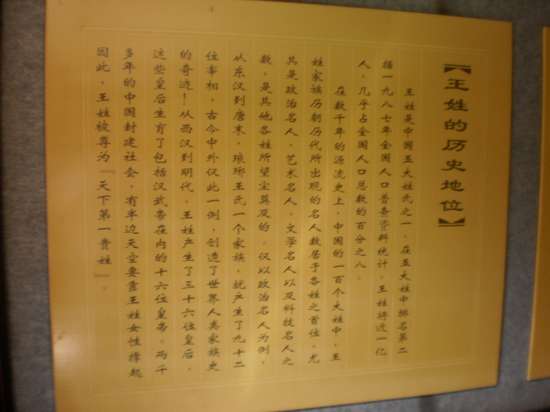 【王姓的历史地位】
王姓是中国五大姓氏之一，在五大姓中排名第二
据一九八七年全国人口普查资料统计，王姓将近一亿
人，几乎占全国人口总数的百分之八。
在数千年的源流史上，中国的一百个大姓中，王
姓家族历朝历代所出现的名人数居于各姓之首位，尤
其是政治名人，艺术名人，文学名人以及科技名人之
数，是其他各姓所望尘莫及的，仅以政治名人为例，
从东汉到唐末，琅琊王氏一个家族，就产生了九十二
位宰相，古今中外仅此一例，创造了世界人类家族史
的奇迹！从西汉到明代，王姓产生了三十六位皇后，
这些皇后生育了包括汉武帝在内的十六位皇帝，两千
多年的中国封建社会，有半边天空要靠王姓女性撑起
因此，王姓被尊为『天下第一贵姓』。